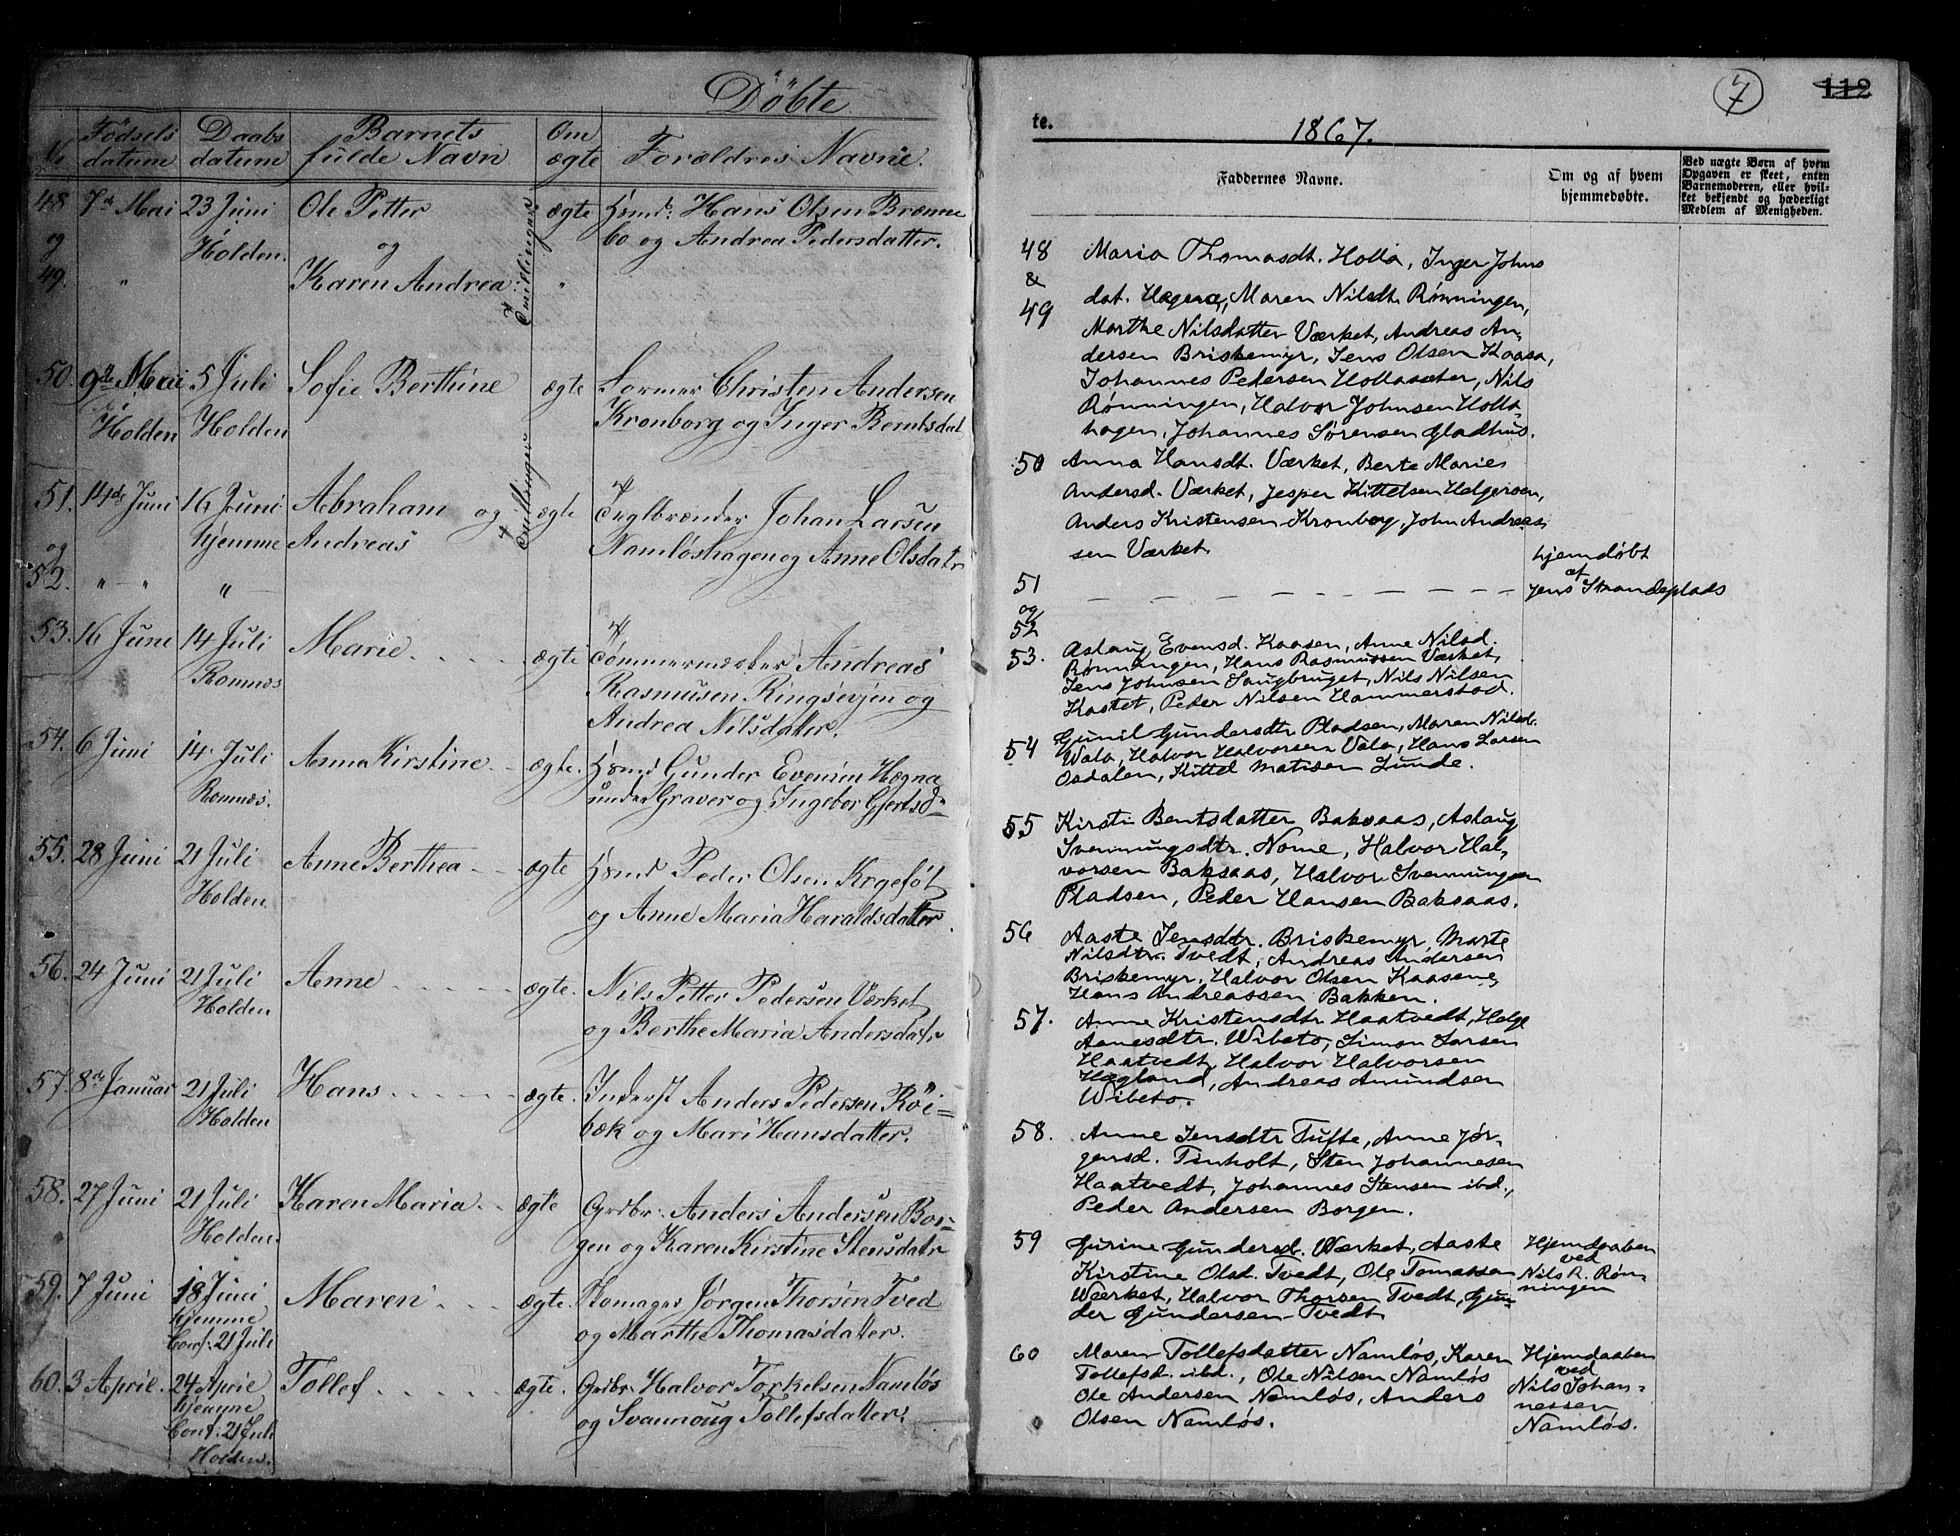 Döbte
№ Födsels datum Daabs datum Barnets fulde Navn Om ægte Forældres Navne.
48 7de Mai 23 Juni Ole Petter ægte Hsmd: Hans Olsen Brænne
og Holden. og Tvillinger bo og Andrea Pedersdatter.
49. " Karen Andrea "
50. 9de Mai 5 Juli Sofie Berthine ægte Former Christen Andersen
Holden Holden Kronborg og Inger Berntsdat
51. 14de Juni 16 Juni Abraham og Tvillinger ægte Teglbrænder Johan Larsen
og hjemme Andreas Namløshagen og Anne Olsdatr
52. " - " "
53. 16 Juni 14 Juli Marie ægte Tømmermester Andreas
Romnæs Rasmusen Ringsevjen og
Andrea Nilsdatter.
54. 6 Juni 14 Juli Anna Kirstine ægte. Hsmd Gunder Evensen Hegna
Romnæs. under Graver og Ingebor Gjertsd.
55. 28 Juni 21 Juli Anne Berthea ægte Hsmd Peder Olsen Kogeföt
Holden og Anne Maria Haraldsdatter.
56. 24 Juni 21 Juli Anne ægte. Nils Petter Pedersen Værket
Holden og Berthe Maria Andersdatr
57. 8de Januar 21 Juli Hans ægte. Inderst Anders Pedersen Röi=
Holden bæk og Mari Hansdatter.
58. 27 Juni 21 Juli Karen Maria ægte Grdbr. Anders Andersen Bor=
Holden. gen og Karen Kirstine Stensdatr
59. 7 Juni 18 Juni Maren ægte. Komager Jørgen Thorsen Tved
hjemme og Marthe Thomasdatter.
Conf. 21 Juli
60. 3 April. 24 April Tollef ægte. Grdbr. Halvor Torkelsen Namløs
hjemme og Svannoug Tollefsdatter.
Conf. 21 Juli
Holden.
7 112
te. 1867.
Faddernes Navne.
Om og af hvem
hjemmedøbte.
Ved uægte Børn af hvem
Opgaven er skeet, enten
Barnemoderen, eller hvil-
ket bekjendt og hæderligt
Medlem af Menigheden.
48 Maria Thomasdt. Holla, Inger Johns
&
49 dat. Hegna, Maren Nilsdt. Rønningen,
Marthe Nilsdatter Værket, Andreas An-
dersen Briskemyr, Jens Olsen Kaasa,
Johannes Pedersen Hollasæter, Nils
Rønningen, Halvor Johnsen Holla-
hagen, Johannes Sørensen Gladhus.
50 Anna Hansdt. Værket, Berte Marie
Andersd. Værket, Jesper Kittelsen Helgersen,
Anders Kristensen Kronborg, John Andrea-
sen Værket.
51 hjemdøbt
og af
52 Jens Strandeplads
53. Aslaug Evensd. Kaasen, Anne Nilsd.
Rønningen, Hans Rasmussen Værket,
Jens Johnsen Saugbruget, Nils Nilsen
Kastet, Peder Nilsen Hammerstad.
54 Gunil Gundersdtr Pladsen, Maren Nilsd.
Vala, Halvor Halvorsen Vala, Hans Larsen
Osdalen, Kittel Matisen Lunde.
55 Kirsti Bentsdatter Baksaas, Aslaug
Svenningsdtr. Nome, Halvor Hal-
vorsen Baksaas, Halvor Svenningsen
Pladsen, Peder Hansen Baksaas.
56 Aaste Jensdtr. Briskemyr, Marte
Nilsdtr. Tvedt, Andreas Andersen
Briskemyr, Halvor Olsen Kaasene,
Hans Andreassen Bakken.
57. Anne Kristensdtr. Haatvedt, Helge
Aanesdtr. Wibeto, Simon Larsen
Haatvedt, Halvor Halvorsen
Hægland, Andreas Amundsen
Wibeto.
58. Anne Jensdtr Tufte, Anne Jør-
gensd. Tinholt, Sten Johannesen
Haatvedt, Johannes Stensen ibd.,
Peder Andersen Borgen.
59 Gurine Gundersd. Værket, Aaste Hjemdaaben
Kirstine Olsd. Tvedt, Ole Tomassen ved Nils R. Røn-
Wærket, Halvor Thorsen Tvedt, Gun- ningen
der Gundersen Tvedt
60 Maren Tollefsdatter Namløs, Karen Hjemdaaben
Tollefsd. ibd., Ole Nilsen Namløs ved
Ole Andersen Namløs, Anders Nils Johan-
Olsen Namløs. nessen
Namløs.